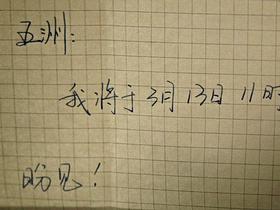 五洲:
我将于3月13日11时
盼见!